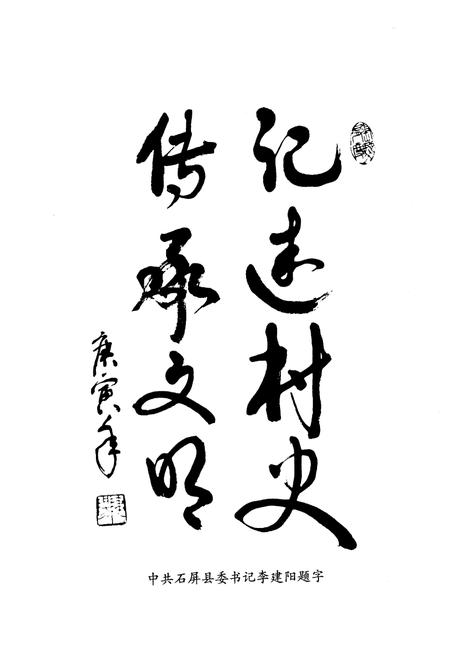 记述村史
传承文明
庚寅年
中共石屏县委书记李建阳题字